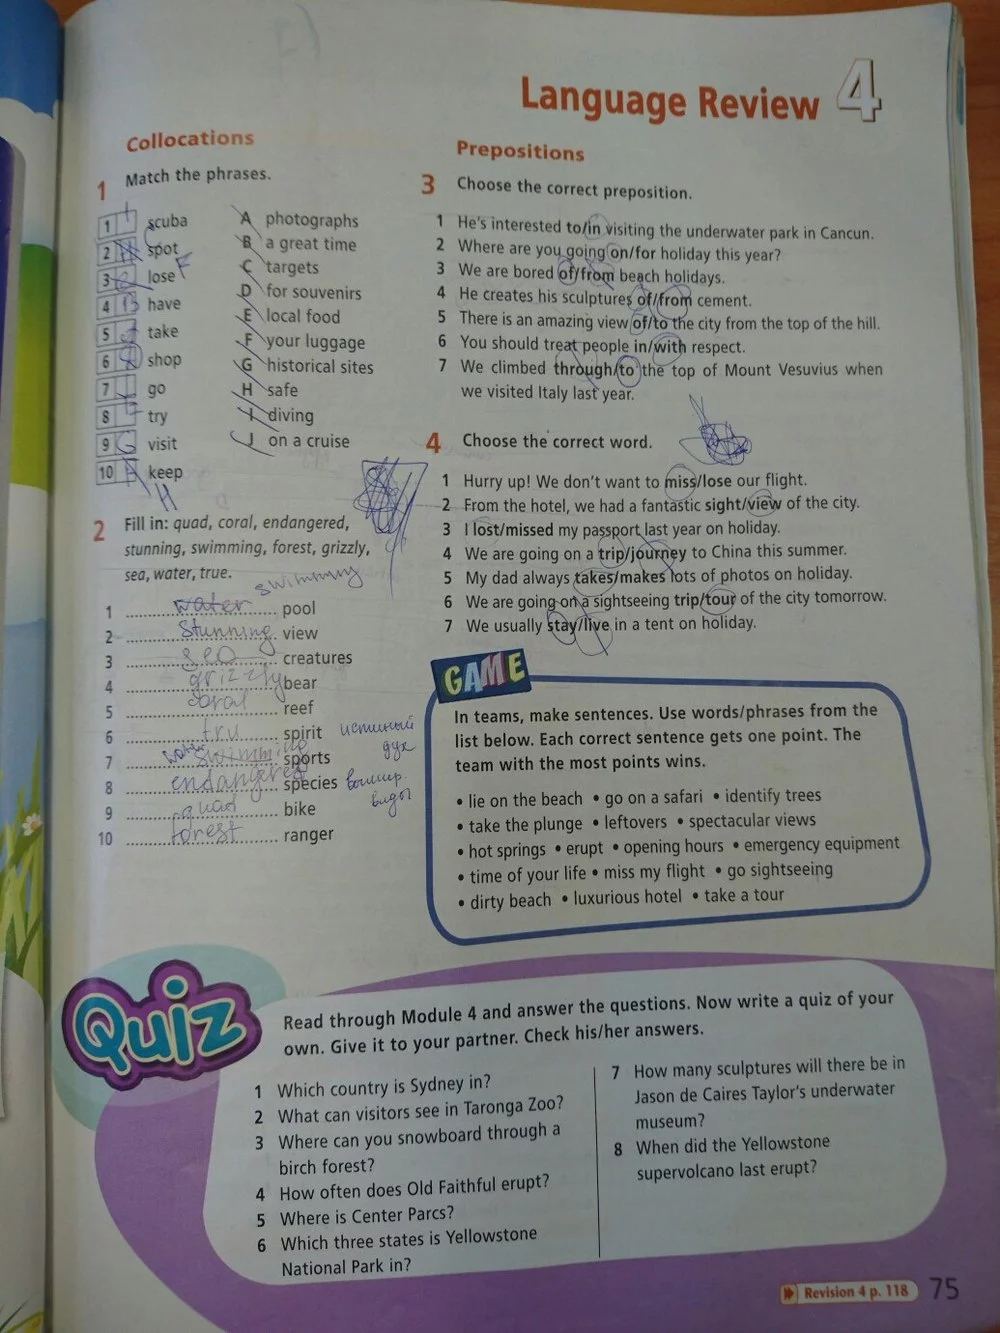 Language Review 4
Collocations
1 Match the phrases.
1 I scuba
2 spot
3 lose F
4 B have
5 take
6 shop
7 J go
8 E try
9 G visit
10 keep
H
A photographs
B a great time
C targets
D for souvenirs
E local food
F your luggage
G historical sites
H safe
I diving
J on a cruise
2 Fill in: quad, coral, endangered,
stunning, swimming, forest, grizzly,
sea, water, true.
swimming
1 water pool
2 stunning view
3 sea creatures
4 grizzly bear
5 coral reef
6 tru spirit истиный
дух
7 swimming sports
8 endangered species вымир.
виды
9 quad bike
10 forest ranger
Prepositions
3 Choose the correct preposition.
1 He's interested to/in visiting the underwater park in Cancun.
2 Where are you going on/for holiday this year?
3 We are bored of/from beach holidays.
4 He creates his sculptures of/from cement.
5 There is an amazing view of/to the city from the top of the hill.
6 You should treat people in/with respect.
7 We climbed through/to the top of Mount Vesuvius when
we visited Italy last year.
4 Choose the correct word.
1 Hurry up! We don't want to miss/lose our flight.
2 From the hotel, we had a fantastic sight/view of the city.
3 I lost/missed my passport last year on holiday.
4 We are going on a trip/journey to China this summer.
5 My dad always takes/makes lots of photos on holiday.
6 We are going on a sightseeing trip/tour of the city tomorrow.
7 We usually stay/live in a tent on holiday.
GAME
In teams, make sentences. Use words/phrases from the
list below. Each correct sentence gets one point. The
team with the most points wins.
• lie on the beach • go on a safari • identify trees
• take the plunge • leftovers • spectacular views
• hot springs • erupt • opening hours • emergency equipment
• time of your life • miss my flight • go sightseeing
• dirty beach • luxurious hotel • take a tour
Quiz
Read through Module 4 and answer the questions. Now write a quiz of your
own. Give it to your partner. Check his/her answers.
1 Which country is Sydney in?
2 What can visitors see in Taronga Zoo?
3 Where can you snowboard through a
birch forest?
4 How often does Old Faithful erupt?
5 Where is Center Parcs?
6 Which three states is Yellowstone
National Park in?
7 How many sculptures will there be in
Jason de Caires Taylor's underwater
museum?
8 When did the Yellowstone
supervolcano last erupt?
Revision 4 p. 118 75